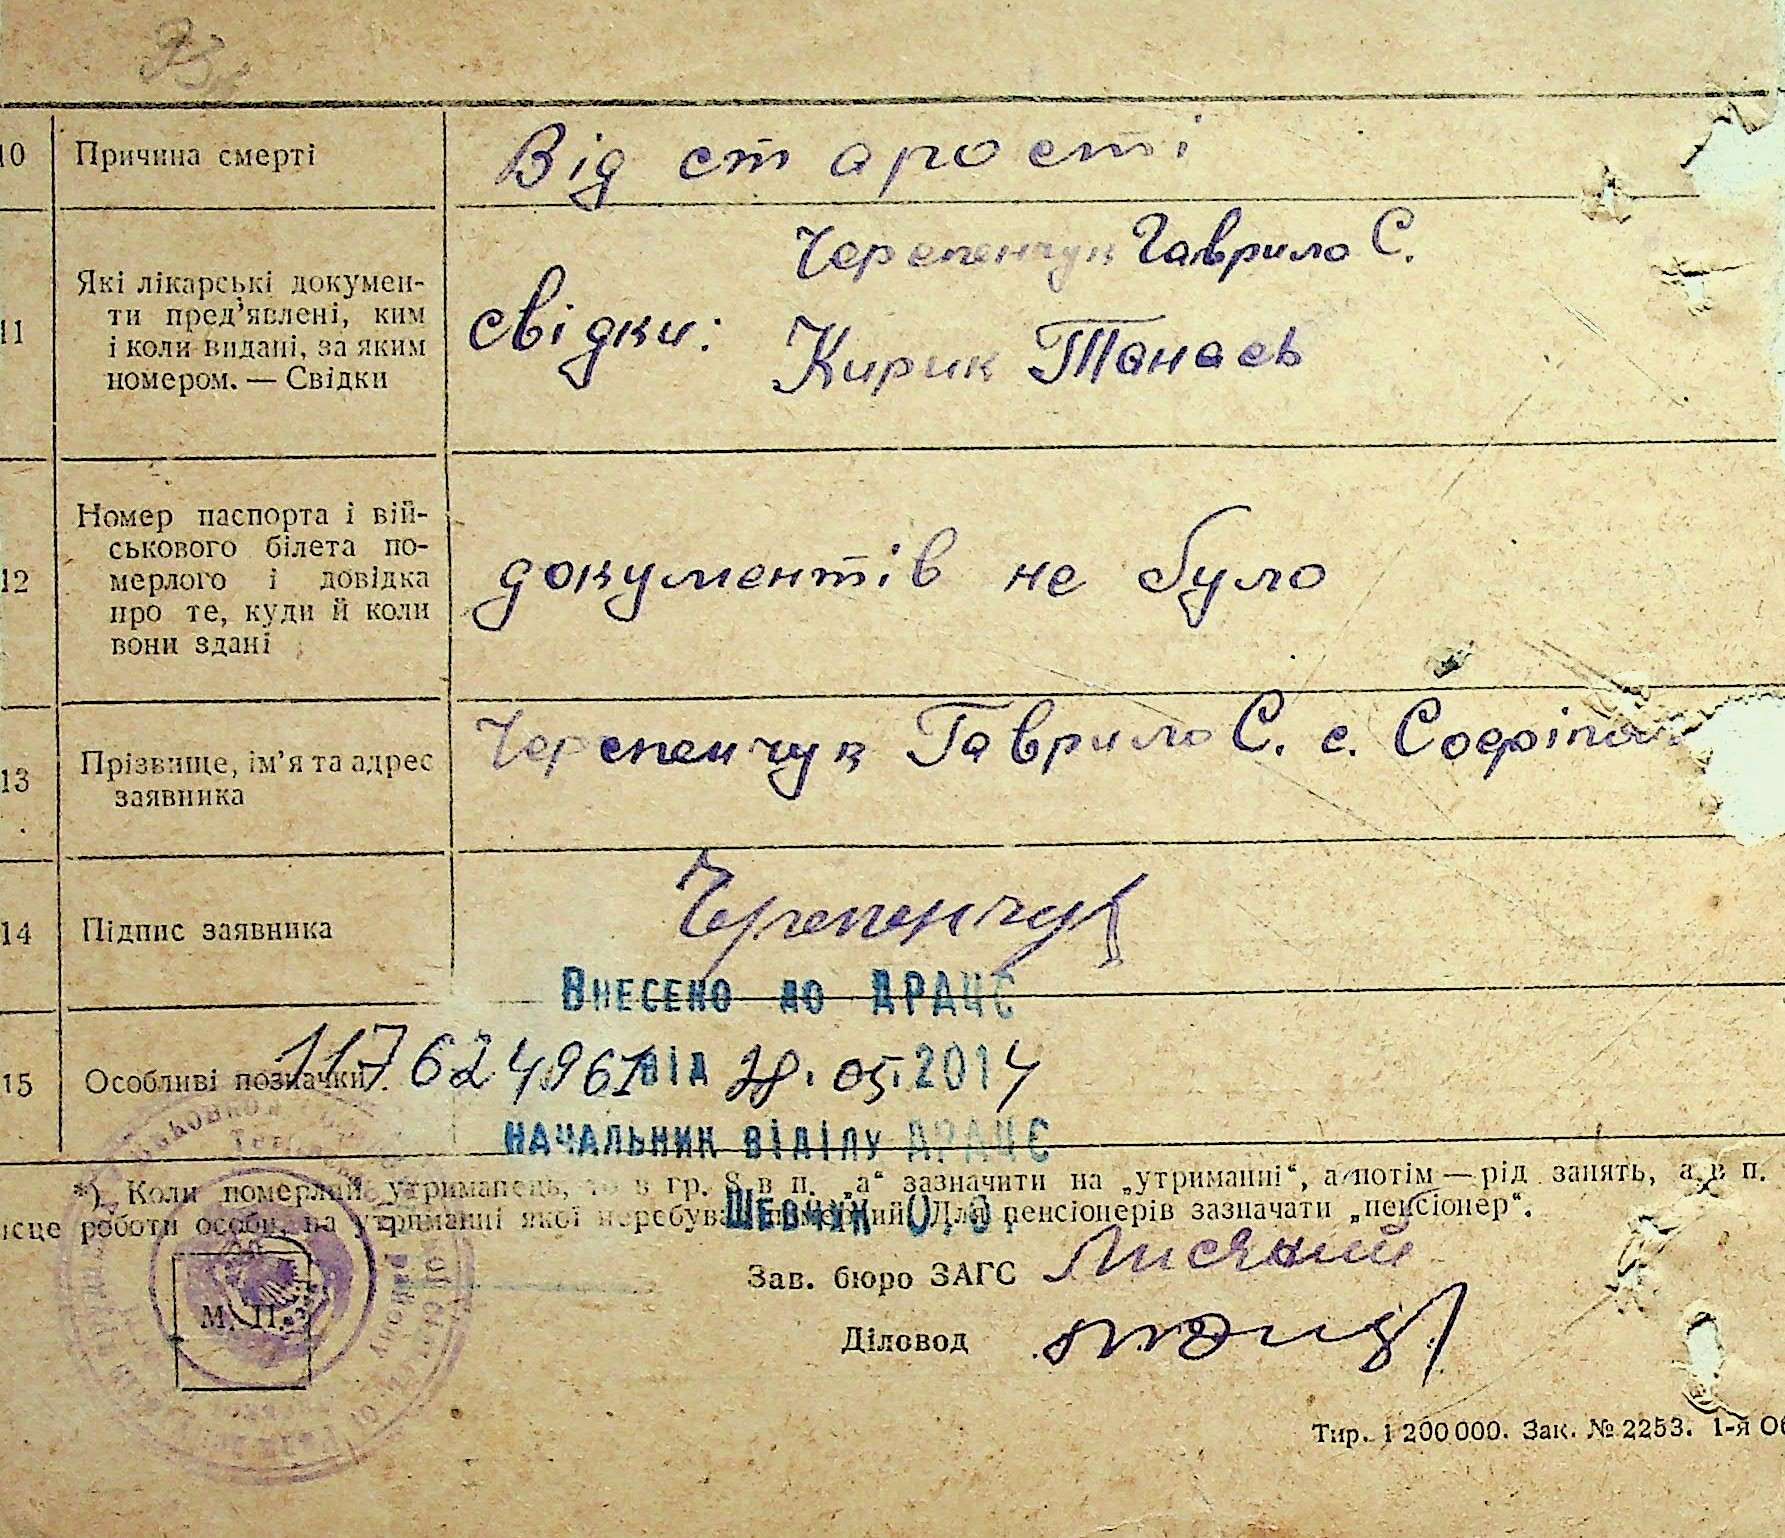 10 Причина смерті Від старості
Черепенчук Гаврило С.
11 Які лікарські докумен-
ти пред'явлені, ким
і коли видані, за яким
номером. — Свідки
свідки: Кирик Танась
12 Номер паспорта і вій-
ськового білета по-
мерлого і довідка
про те, куди й коли
вони здані
документів не було
13 Прізвище, ім'я та адрес
заявника
Черепенчук Гаврило С. с.
14 Підпис заявника Черепенчук
Внесено до ДРАЦС
15 Особливі позначки. 117624961 від 28.05.2014
начальник відділу ДРАЦС
*) Коли померлий утриманець, то в гр. 8 в п. „а“ зазначити на „утриманні“, а потім — рід занять, а в п.
ісце роботи особи, на утриманні якої перебував померлий. Для пенсіонерів зазначати „пенсіонер“.
Шевчук О.
Зав. бюро ЗАГС
М. П.
Діловод
Тир. 1 200 000. Зак. № 2253. 1-я Об